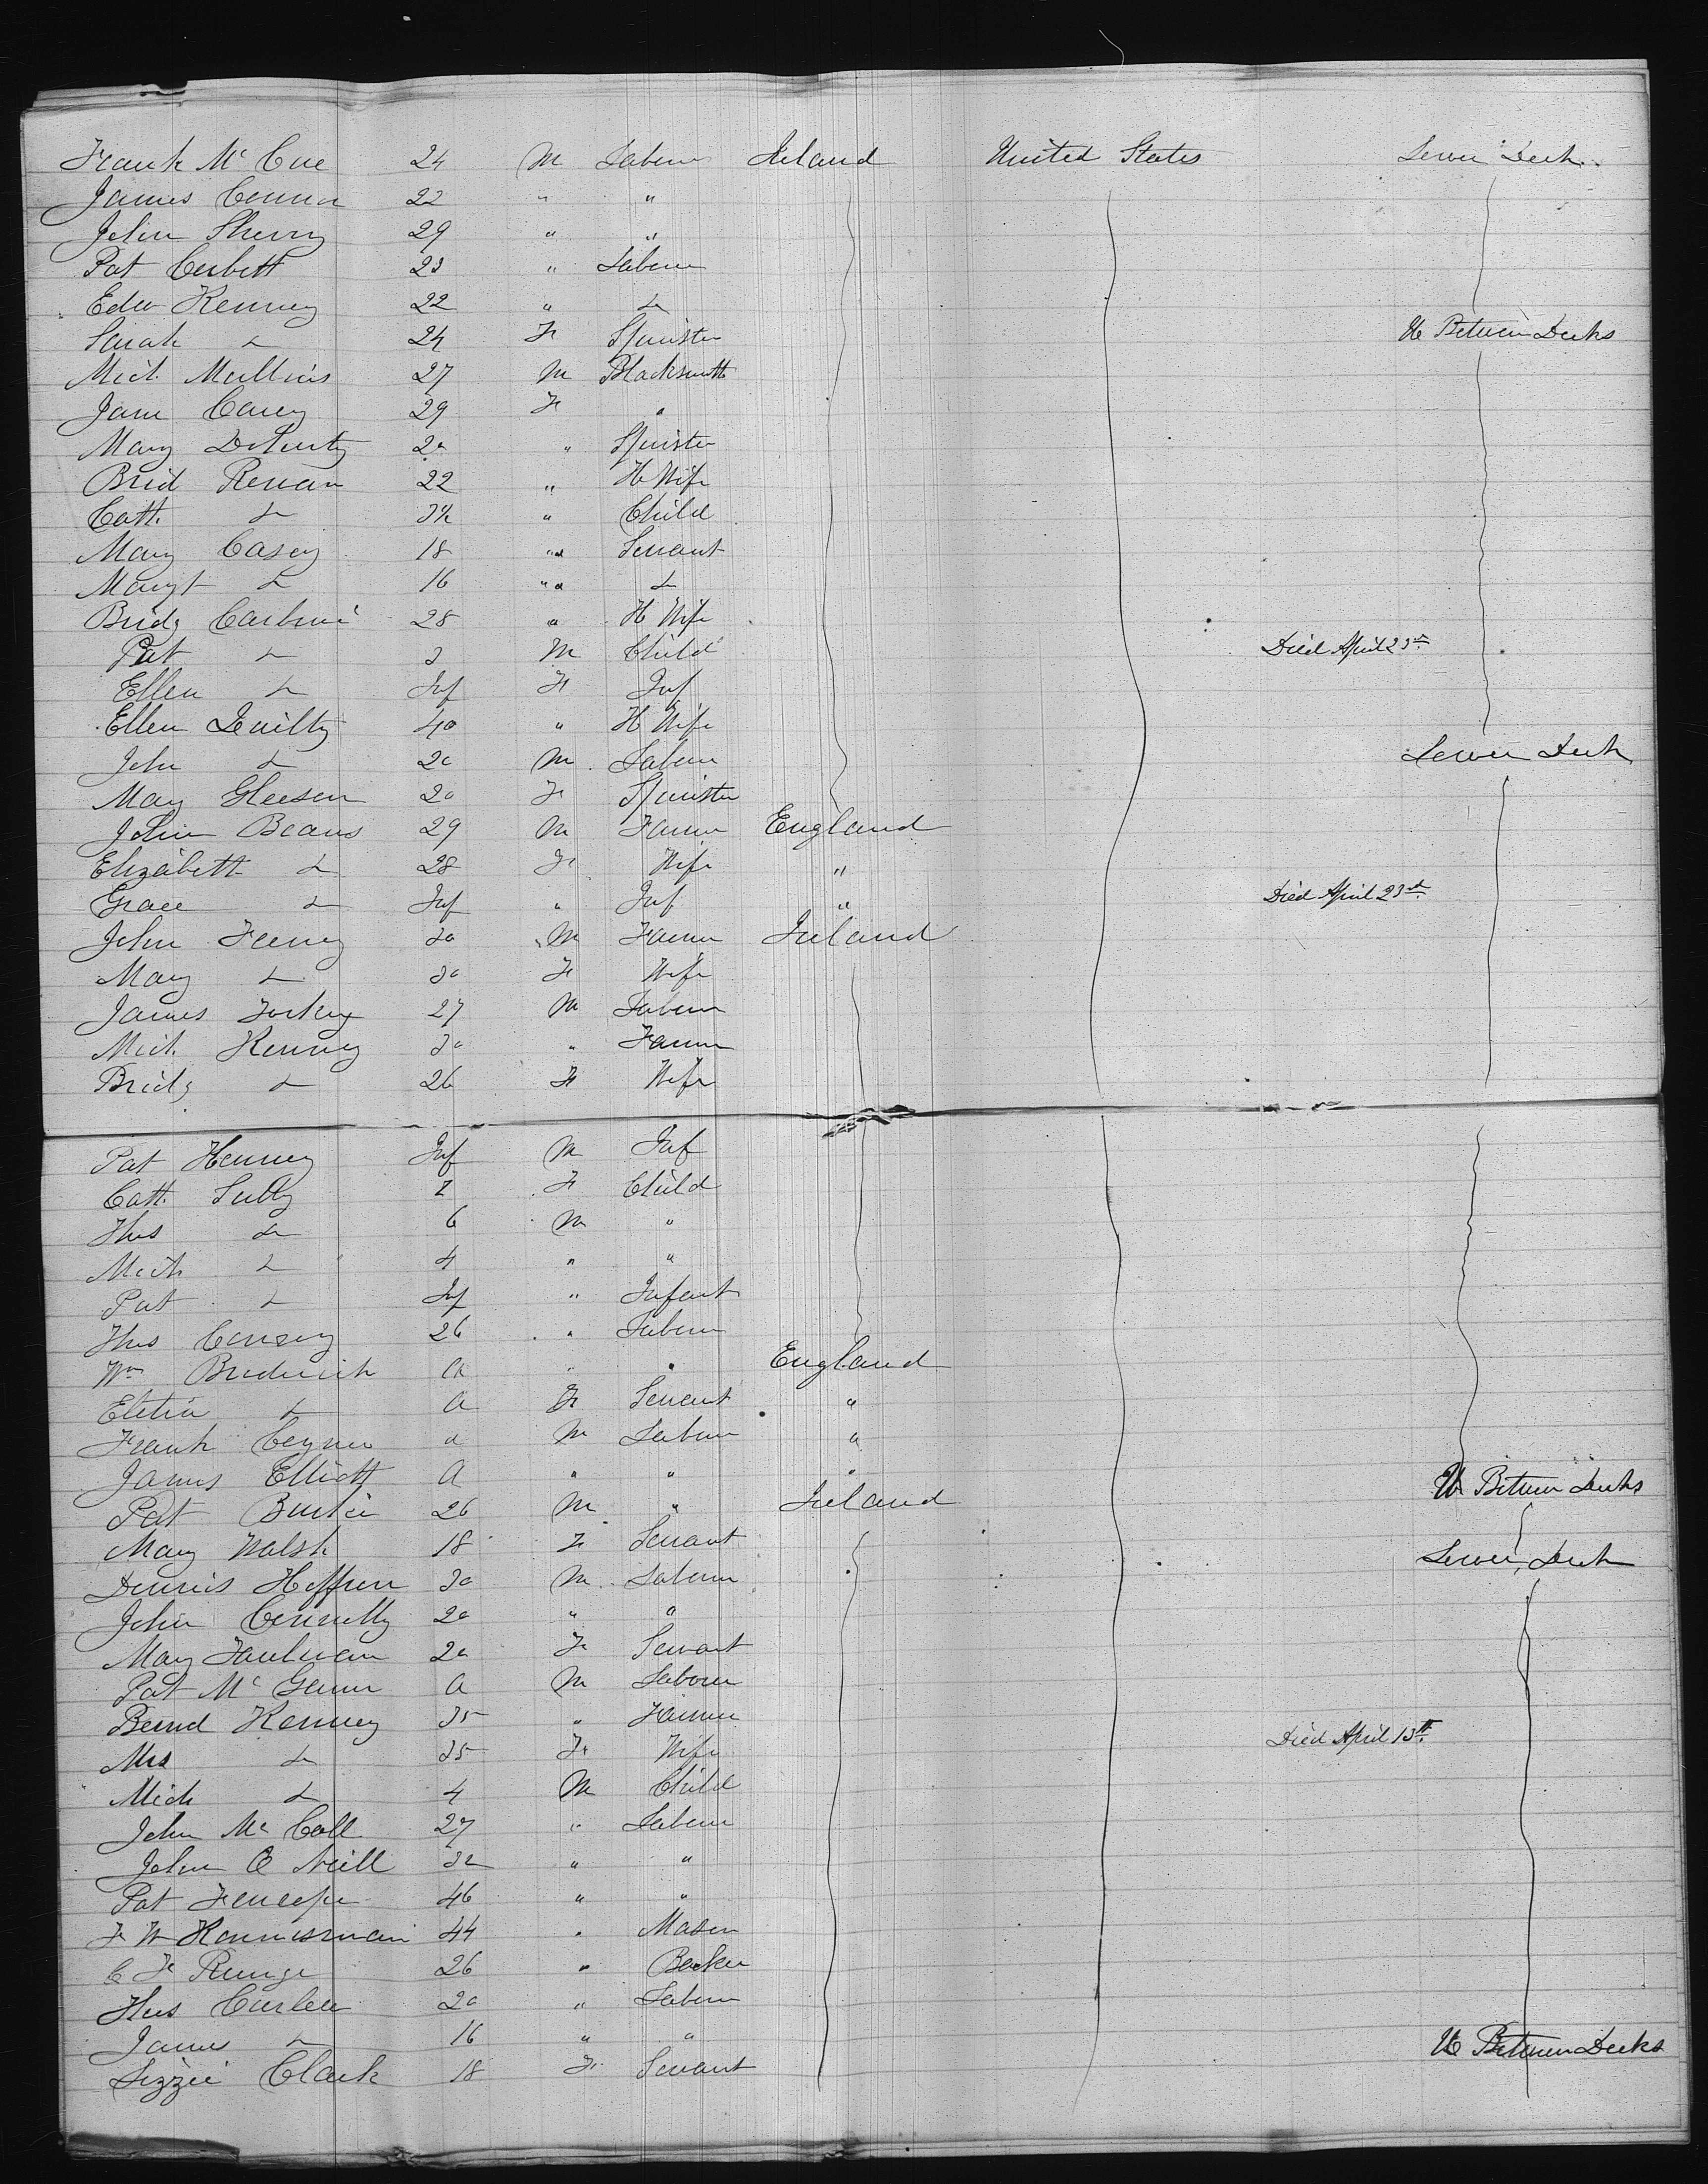 Frank Mc Cue 24 M Laborer Ireland United States Lower Deck
James Connor 22 " "
John Sherry 29 " "
Pat Corbett 23 " Laborer
Edw Kenney 22 " Do
Sarah Do 24 F Spinster U Between Decks
Mich Mullins 27 M Blacksmith
Jane Carey 29 F "
Mary Doherty 20 " Spinster
Brid 22 " H Wife
Cath Do 3½ " Child
Mary Casey 18 " Servant
Margt Do 16 " Do
Bridg 28 " H Wife
Pat Do 3 M Child Died April 23rd
Ellen Do Inf F Inf
Ellen Quilty 40 " H Wife
John Do 20 M Laborer Lower Deck
Mary Gleeson 20 F Spinster
John Beans 29 M Farmer England
Elizabeth Do 28 F Wife "
Grace Do Inf " Inf " Died April 23rd
John Feeney 30 M Farmer Ireland
Mary Do 30 F Wife
James 27 M Laborer
Mich Kenney 30 " Farmer
Bridg Do 26 F Wife
Pat Kenney Inf M Inf
Cath Scully F Child
Thos Do 6 M "
Mich Do 4 " "
Pat Do Inf " Infant
Thos Conroy 26 " Laborer
Wm Broderick a " " England
Do a F Servant "
Frank a M Laborer "
James Elliott a " " "
Pat Burke 26 M " Ireland U Between Decks
Mary Walsh 18 F Servant Lower Deck
Dennis Heffren 30 M Laborer
John Connelly 20 " "
Mary 20 F Servant
Pat Mc Gann a M Laborer
Bernd Kenney 35 " Farmer
Mrs Do 35 F Wife Died April 13th
Mich Do 4 M Child
John Mc Call 27 " Laborer
John O Neill 32 " "
Pat 46 " "
F W 44 " Mason
C F Runge 26 " Baker
Thos Curlen 20 " Laborer
James Do 16 " "
Lizzie Clark 18 F Servant U Between Decks